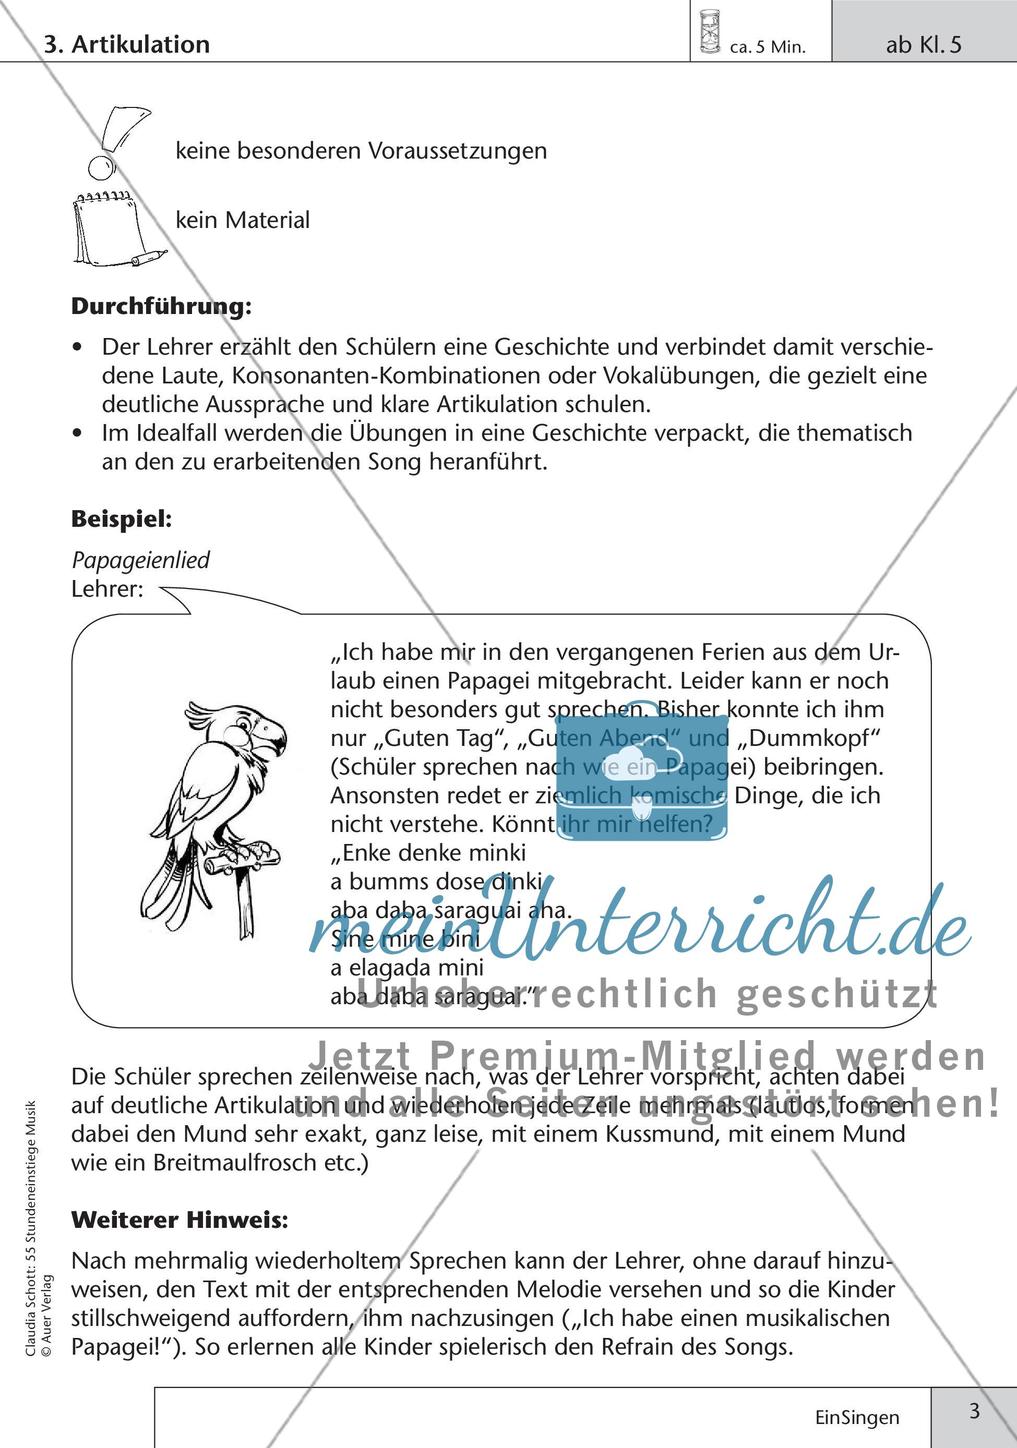 3. Artikulation
ca. 5 Min.
ab Kl. 5
keine besonderen Voraussetzungen
kein Material
Durchführung:
• Der Lehrer erzählt den Schülern eine Geschichte und verbindet damit verschie-
dene Laute, Konsonanten-Kombinationen oder Vokalübungen, die gezielt eine
deutliche Aussprache und klare Artikulation schulen.
• Im Idealfall werden die Übungen in eine Geschichte verpackt, die thematisch
an den zu erarbeitenden Song heranführt.
Beispiel:
Papageienlied
Lehrer:
„Ich habe mir in den vergangenen Ferien aus dem Ur-
laub einen Papagei mitgebracht. Leider kann er noch
nicht besonders gut sprechen. Bisher konnte ich ihm
nur „Guten Tag“, „Guten Abend“ und „Dummkopf“
(Schüler sprechen nach wie ein Papagei) beibringen.
Ansonsten redet er ziemlich komische Dinge, die ich
nicht verstehe. Könnt ihr mir helfen?
„Enke denke minki
a bumms dose dinki
aba daba saraguai aha.
Sine mine bini
a elagada mini
aba daba saraguai.“
meinUnterricht.de
Urheberrechtlich geschützt
Jetzt Premium-Mitglied werden
und alle Seiten ungestört sehen!
Die Schüler sprechen zeilenweise nach, was der Lehrer vorspricht, achten dabei
auf deutliche Artikulation und wiederholen jede Zeile mehrmals (lautlos, formen
dabei den Mund sehr exakt, ganz leise, mit einem Kussmund, mit einem Mund
wie ein Breitmaulfrosch etc.)
Weiterer Hinweis:
Nach mehrmalig wiederholtem Sprechen kann der Lehrer, ohne darauf hinzu-
weisen, den Text mit der entsprechenden Melodie versehen und so die Kinder
stillschweigend auffordern, ihm nachzusingen („Ich habe einen musikalischen
Papagei!“). So erlernen alle Kinder spielerisch den Refrain des Songs.
Claudia Schott: 55 Stundeneinstiege Musik
© Auer Verlag
EinSingen
3